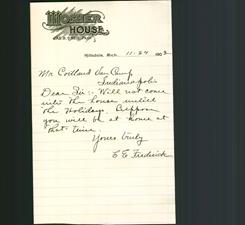 Mosher
House
Hillsdale, Mich. 11-24 190
Mr Cortland Van Camp
Indianapolis
Dear Sir:- Will not come
into the house untill
the Holidays.
you will be at home at
that time.
Yours truly
E E Fredrick